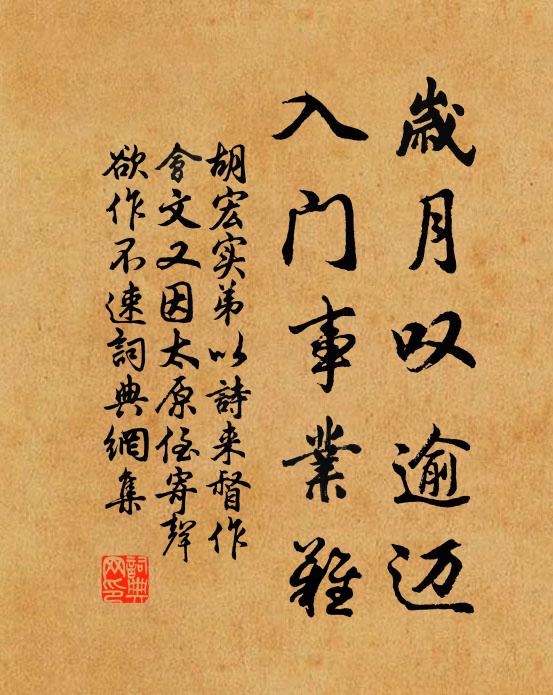 歲月叹逾迈
入门事業難
胡宏实弟以詩来督作
會文又因太原侄寄聲
欲作不速詞典網集
詞典网印